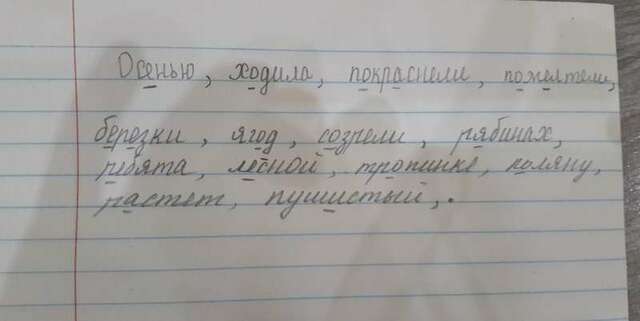 Осенью, ходила, покраснели, пожелтели,
берёзки, ягод, созрели, рябинах,
ребята, лесной, тропинке, поляну,
растет, пушистый,.